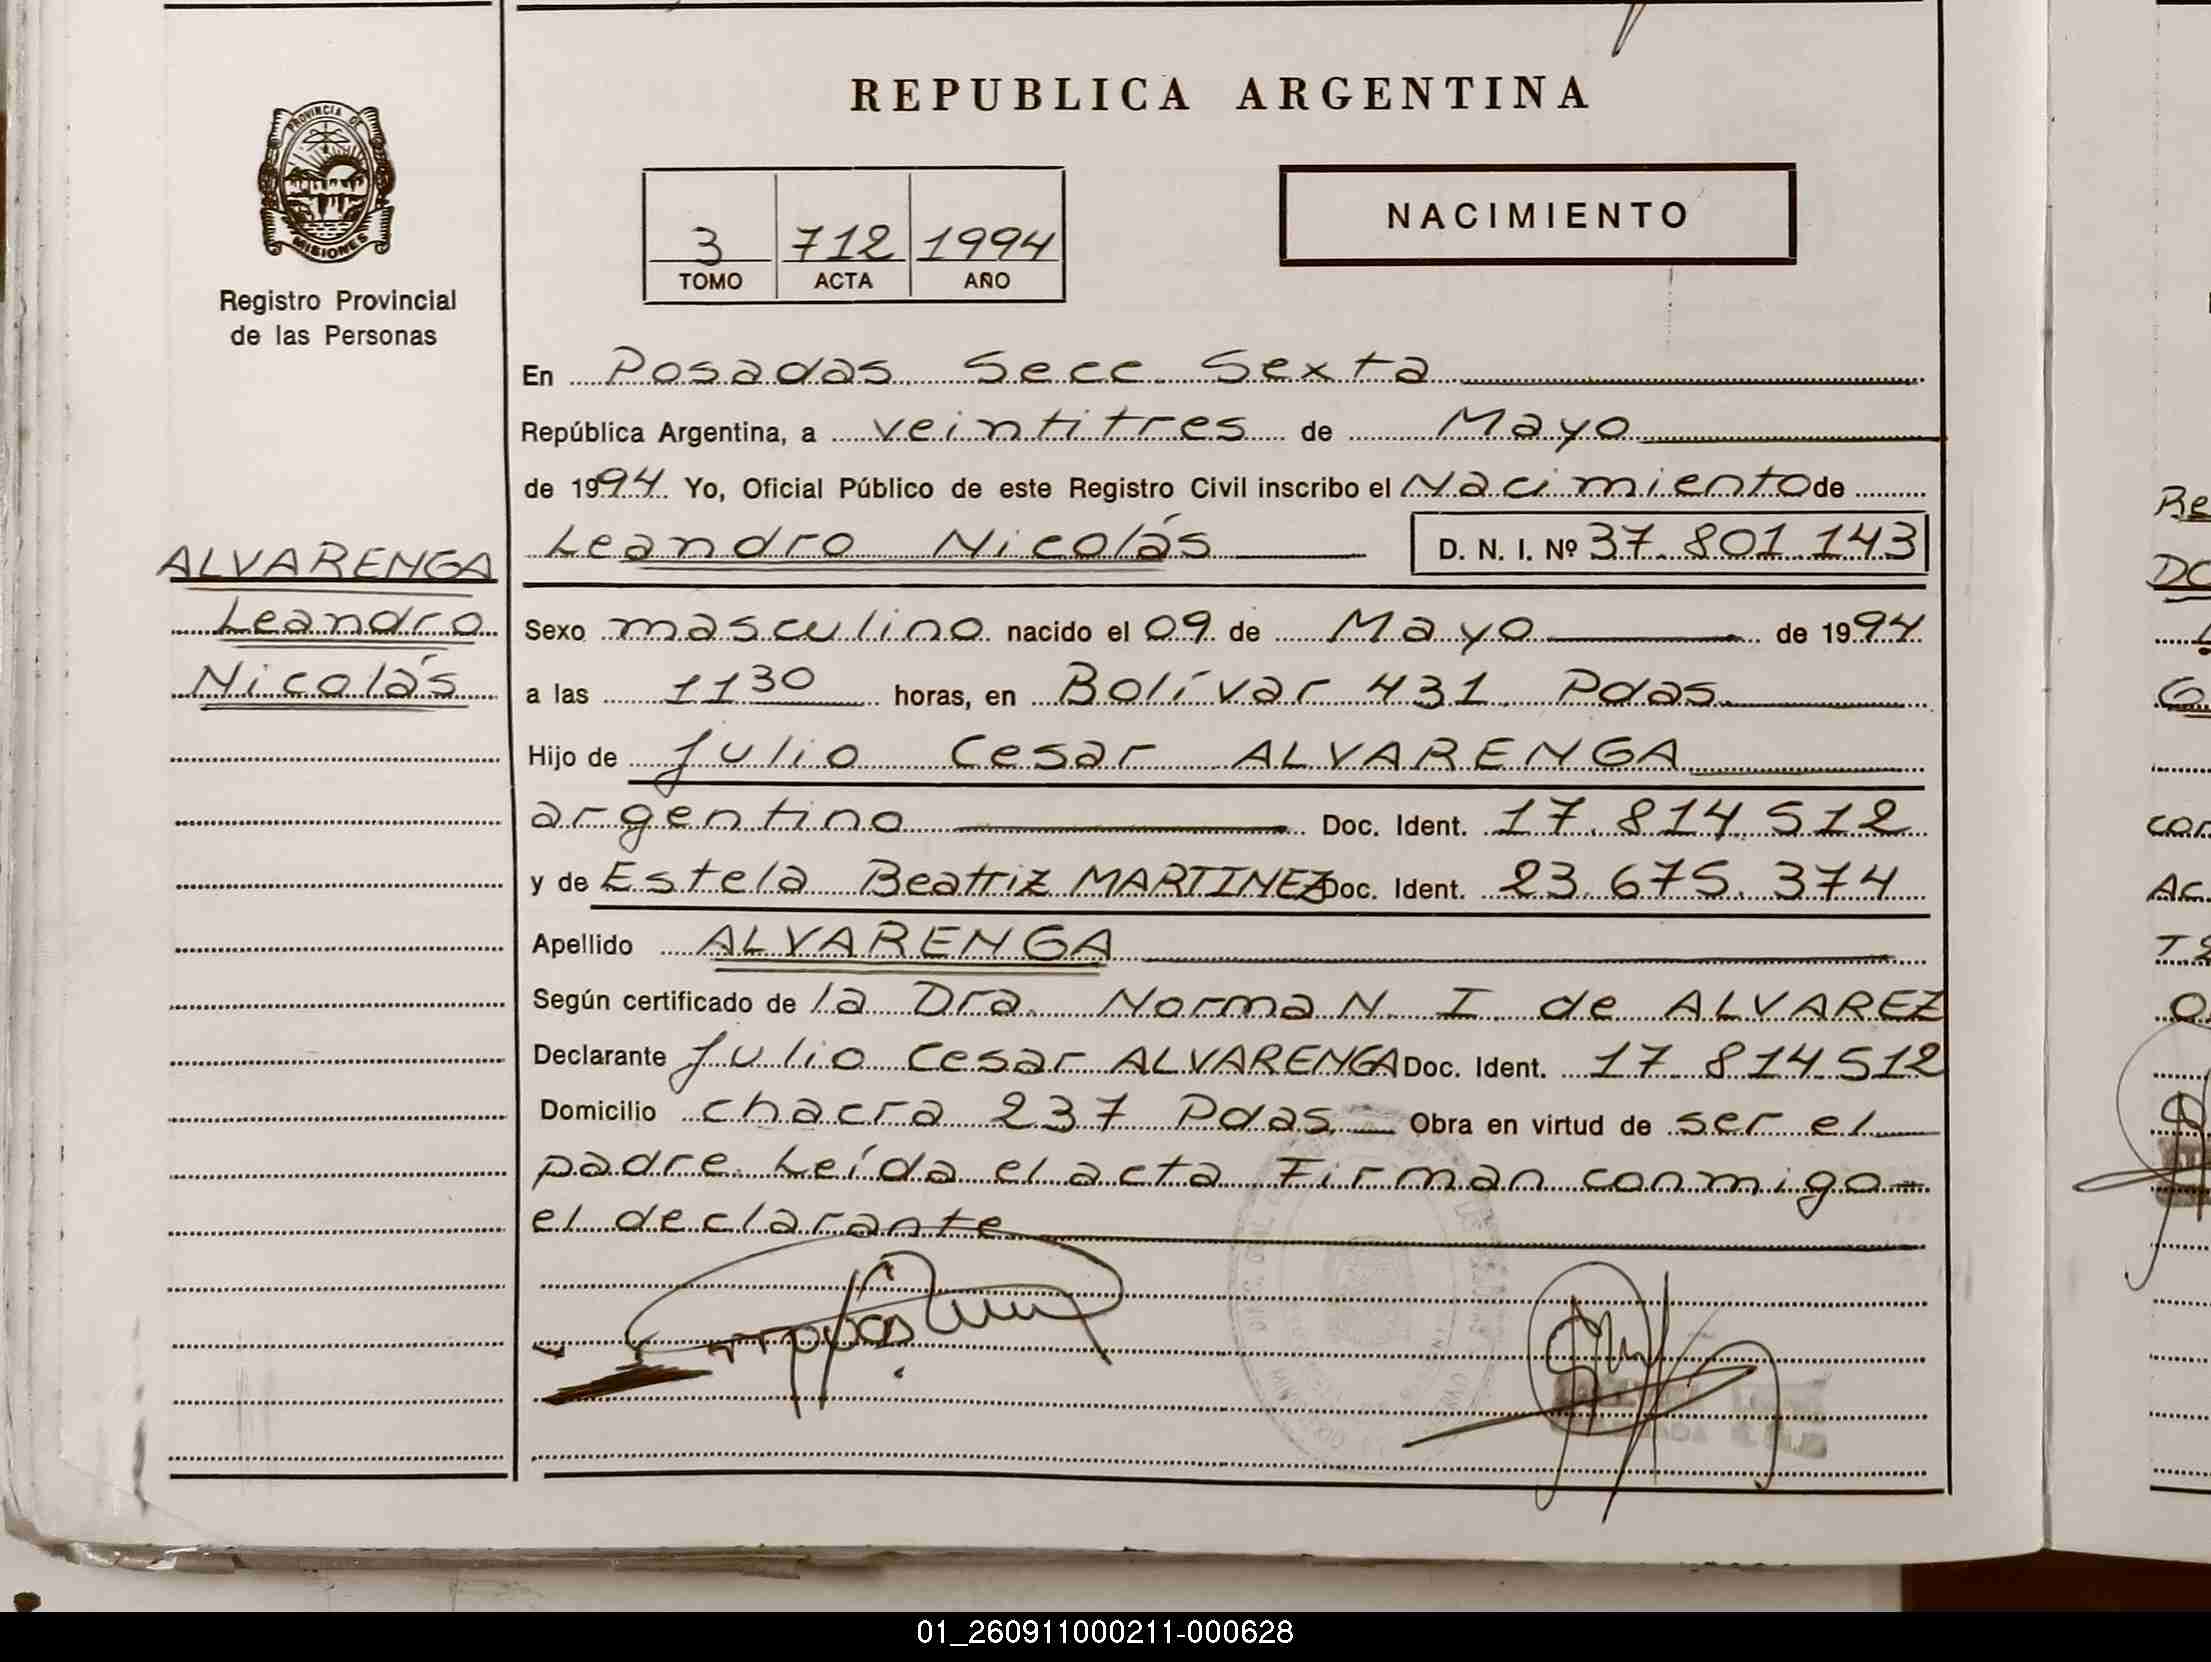 REPUBLICA ARGENTINA
PROVINCIA DE
MISIONES
Registro Provincial
de las Personas
NACIMIENTO
3 712 1994
TOMO ACTA AÑO
En Posadas Secc Sexta
República Argentina, a veintitres de Mayo
de 1994 Yo, Oficial Público de este Registro Civil inscribo el Nacimiento de
Leandro Nicolás D. N. I. Nº 37.801.143
ALVARENGA
Leandro
Nicolás
Sexo masculino nacido el 09 de Mayo de 1994
a las 11 30 horas, en Bolívar 431 Pdas.
Hijo de Julio Cesar ALVARENGA
argentino Doc. Ident. 17.814.512
y de Estela Beatriz MARTINEZ Doc. Ident. 23.675.374
Apellido ALVARENGA
Según certificado de la Dra. Norma N. I. de ALVAREZ
Declarante Julio Cesar ALVARENGA Doc. Ident. 17 814512
Domicilio chacra 237 Pdas. Obra en virtud de ser el
padre. Leída el acta Firman conmigo
el declarante
01_260911000211-000628